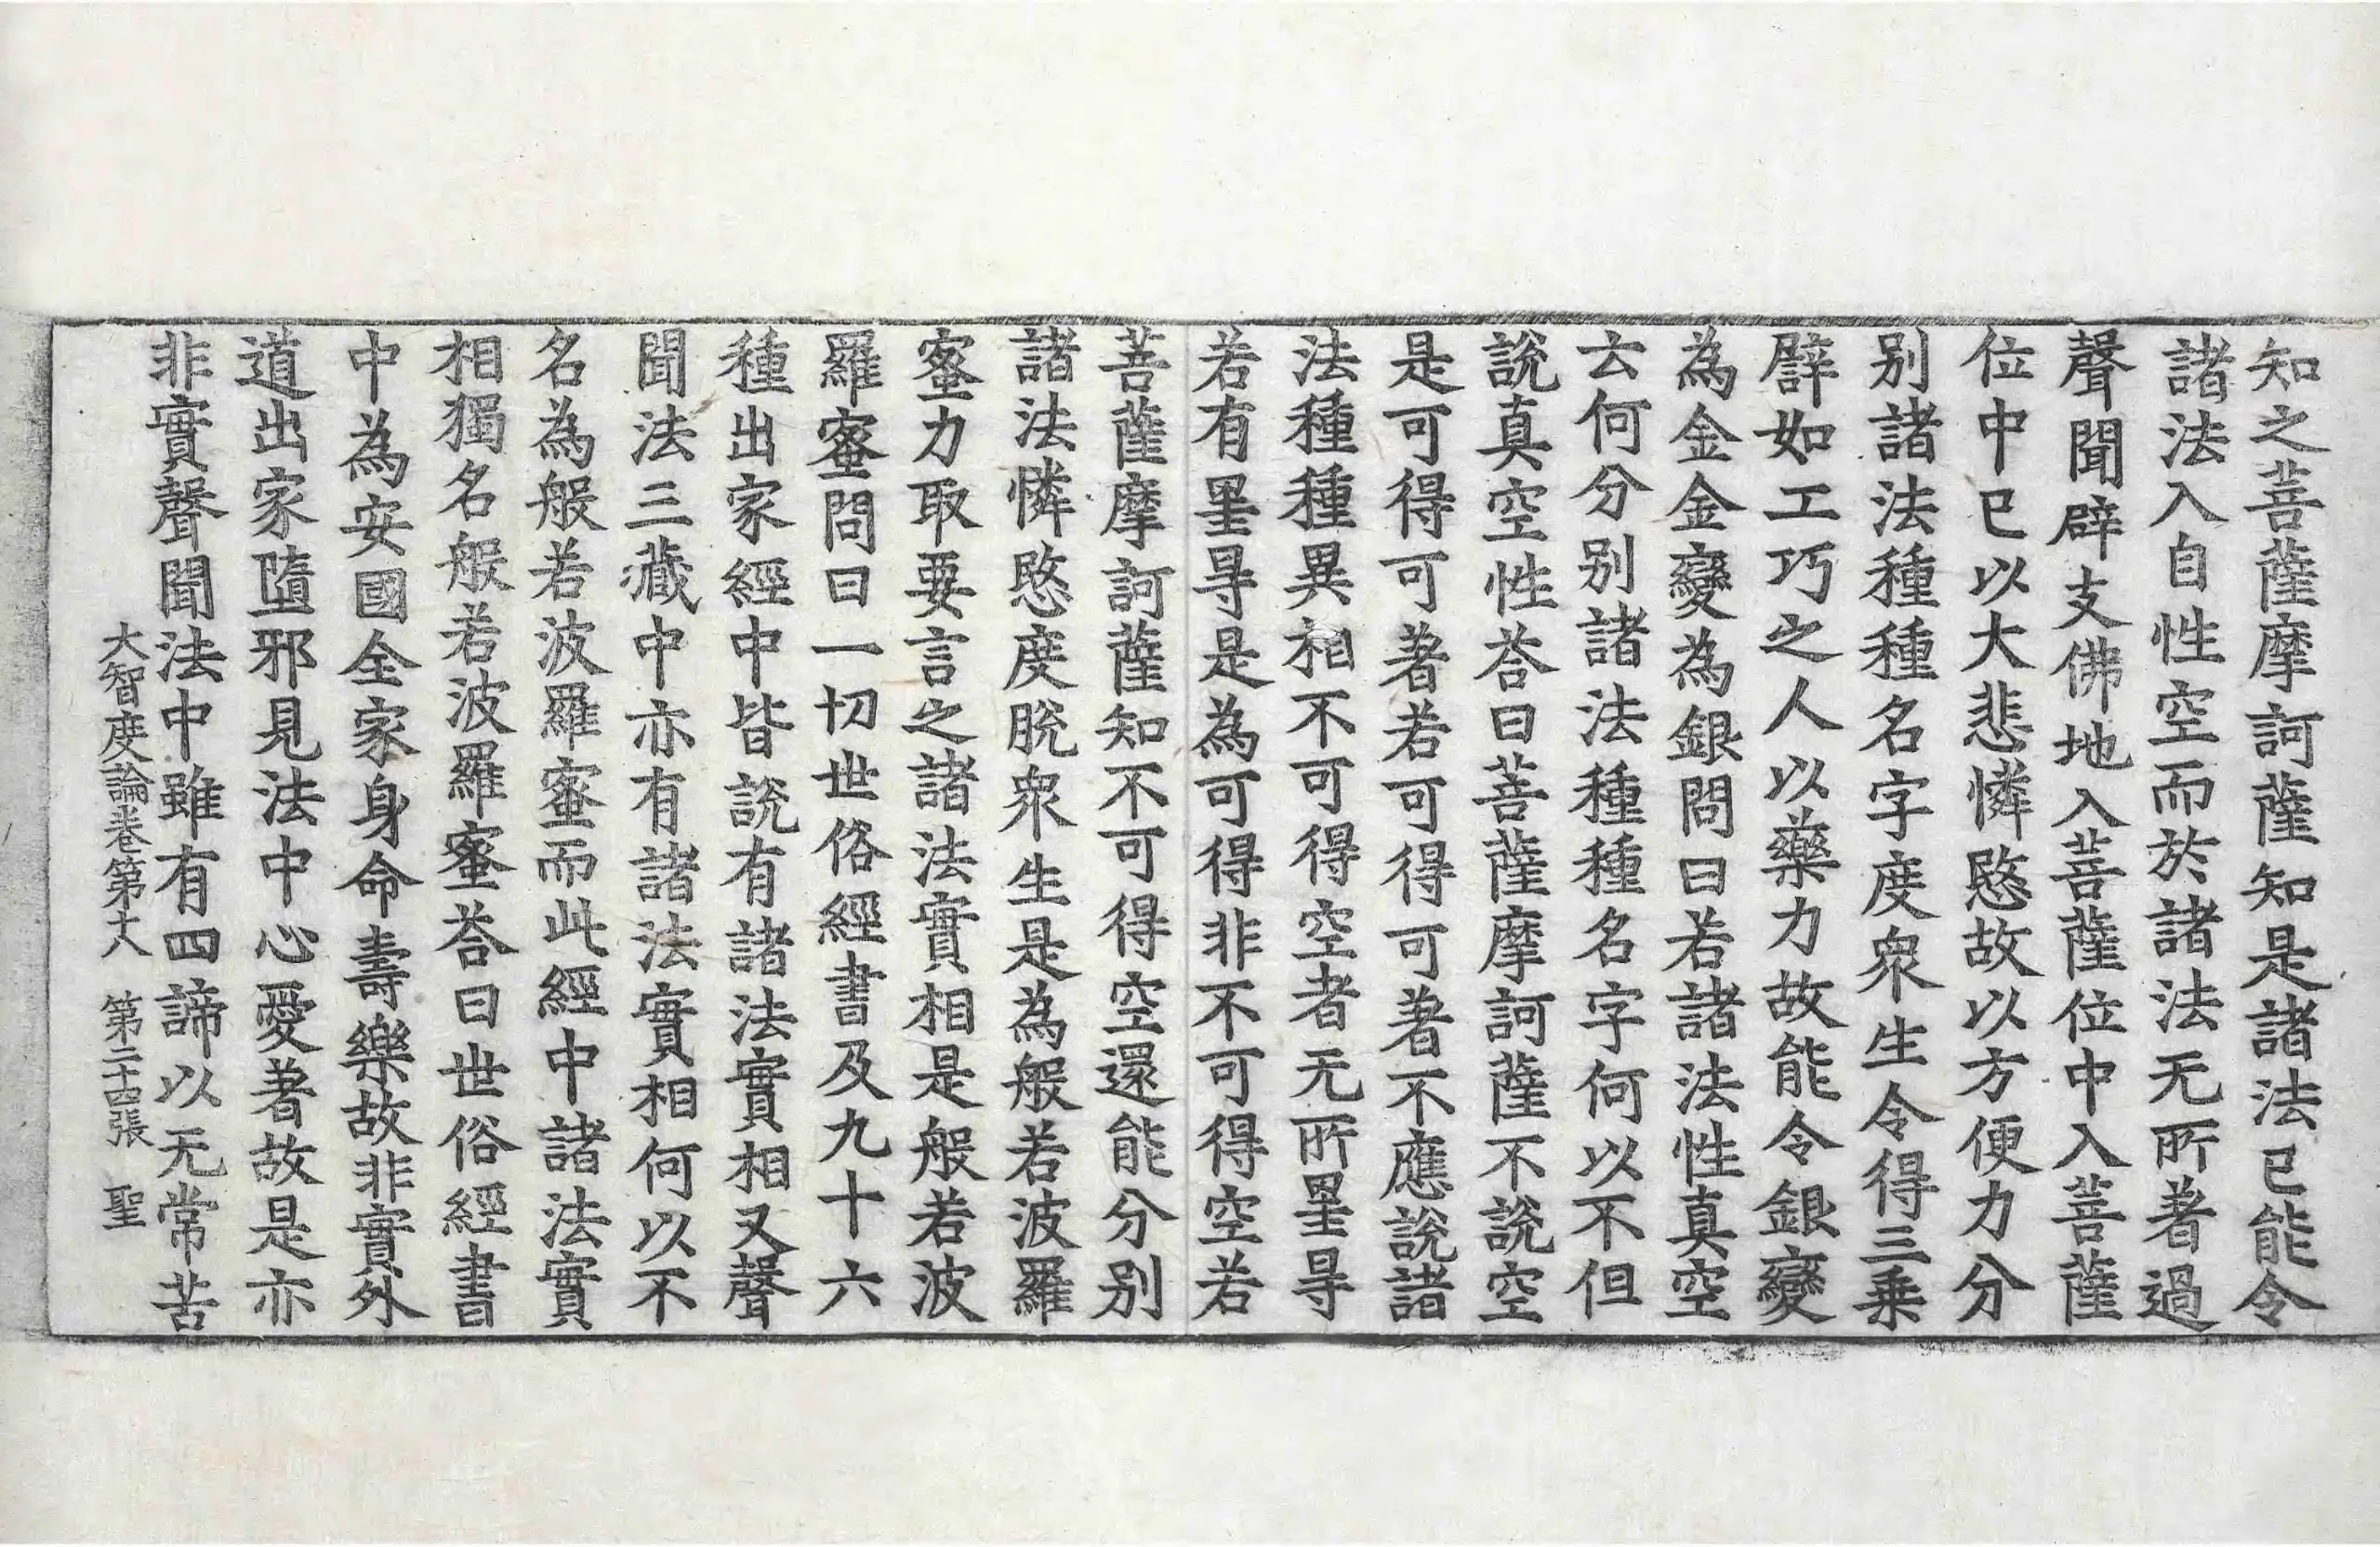 知之菩薩摩訶薩知是諸法已能令
諸法入自性空而於諸法无所著過
聲聞辟支佛地入菩薩位中入菩薩
位中已以大悲憐愍故以方便力分
別諸法種種名字度衆生令得三乗
譬如工巧之人以藥力故能令銀變
為金金變為銀問曰若諸法性真空
云何分別諸法種種名字何以不但
說真空性荅曰菩薩摩訶薩不說空
是可得可著若可得可著不應說諸
法種種異相不可得空者无所罣㝵
若有罣㝵是為可得非不可得空若
菩薩摩訶薩知不可得空還能分別
諸法憐愍度脫衆生是為般若波羅
蜜力取要言之諸法實相是般若波
羅蜜問曰一切世俗經書及九十六
種出家經中皆說有諸法實相又聲
聞法三藏中亦有諸法實相何以不
名為般若波羅蜜而此經中諸法實
相獨名般若波羅蜜荅曰世俗經書
中為安國全家身命壽樂故非實外
道出家墮邪見法中心愛著故是亦
非實聲聞法中雖有四諦以无常苦
大智度論卷第十八 第二十四張 聖